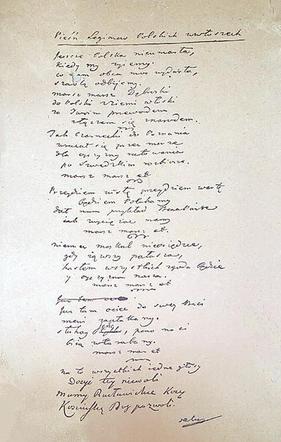 Pieśń Legionów Polskich we Włoszech
Jeszcze Polska nie umarła,
kiedy my żyjemy.
co nam obca moc wydarła,
szablą odbijemy.
marsz marsz Dąbrowski
do Polski z ziemi włoski
za Twoim przewodem
złączem się z narodem.
Jak Czarnecki do Poznania
wracał się przez morze
dla ojczyzny ratowania
po szwedzkim rozbiorze.
marsz marsz etc
Przejdziem Wisłę przejdziem Wartę
będziem Polakami
dał nam przykład Bonaparte
jak zwyciężać mamy
marsz marsz etc
niemiec moskal nieosiędzie,
gdy jąwszy pałasza,
hasłem wszystkich zgoda będzie
y ojczyzna nasza.
marsz marsz etc
Już tam
Już tam ociec do swej Basi
mówi zapłakany.
słuchaj, pono nasi
biją w tarabany.
marsz etc
na to wszystkich jedne głosy
Dosyć tej niewoli
mamy Racławickie Kosy
Kościuszkę Bóg pozwoli.